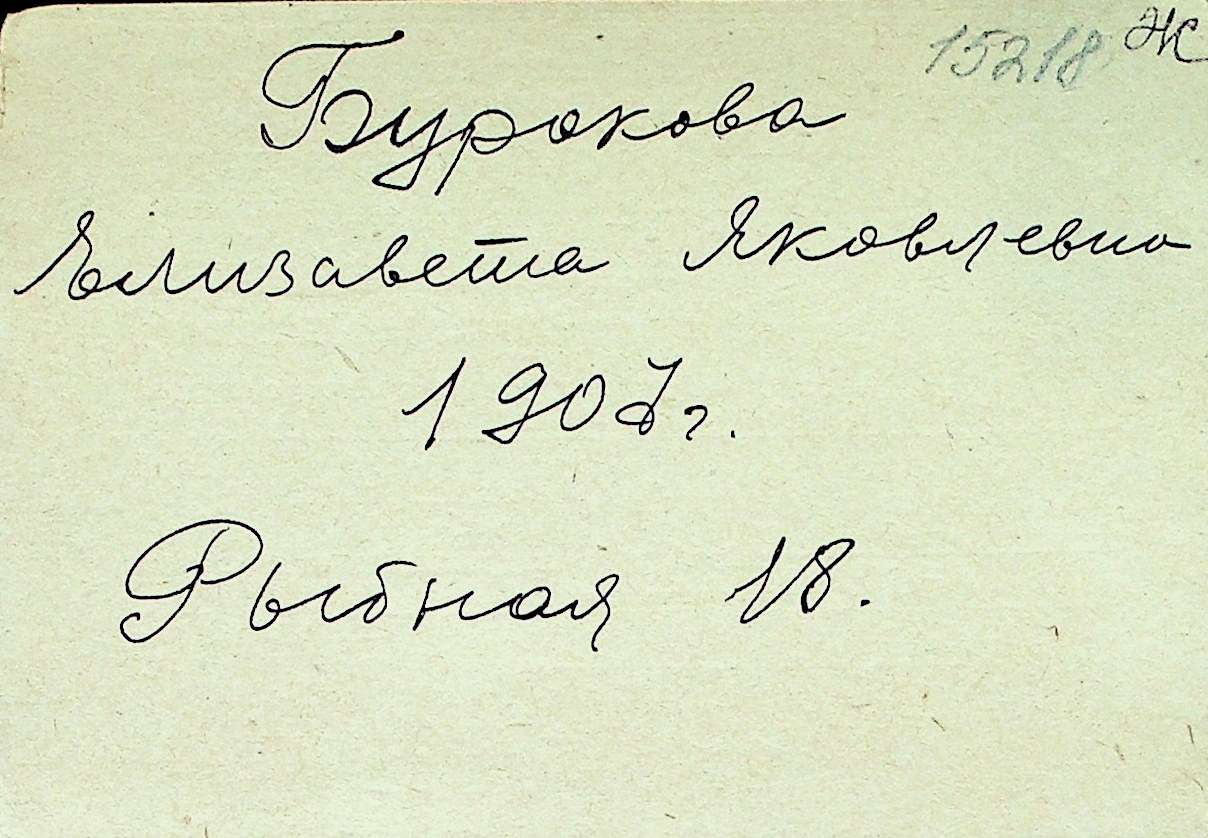 15218 Ж
Бурокова
Елизавета Яковлевна
1907г.
Рыбная 18.